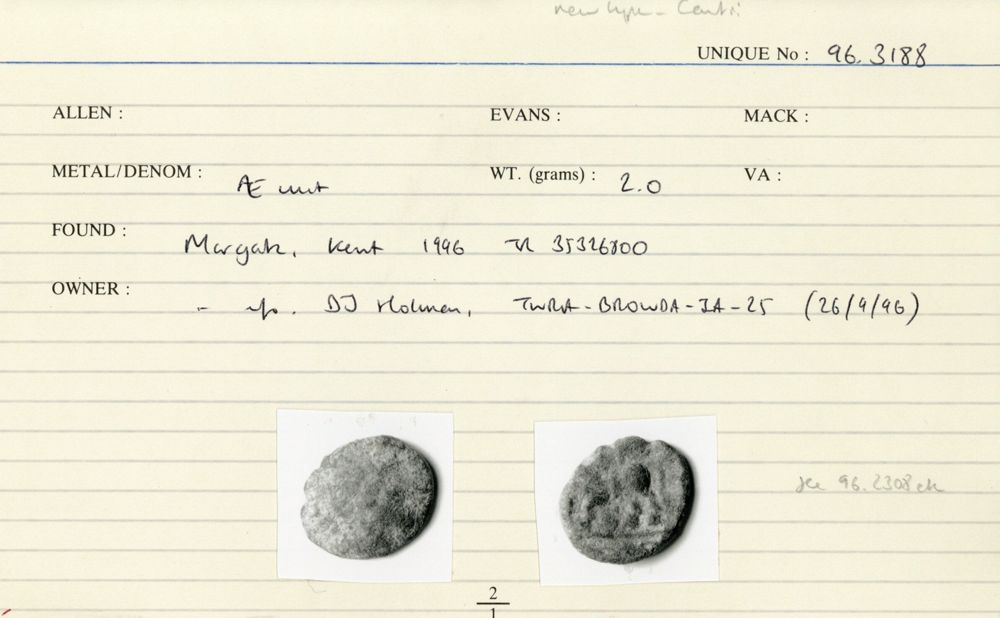 new type - Canti
UNIQUE No : 96.3188
ALLEN : EVANS : MACK :
METAL/DENOM : Æ unit WT. (grams) : 2.0 VA :
FOUND : Margate, Kent 1996 TR 35326800
OWNER : - DJ Holman, TWRA-BROWDA-IA-25 (26/9/96)
see 96.2308 etc
2
1